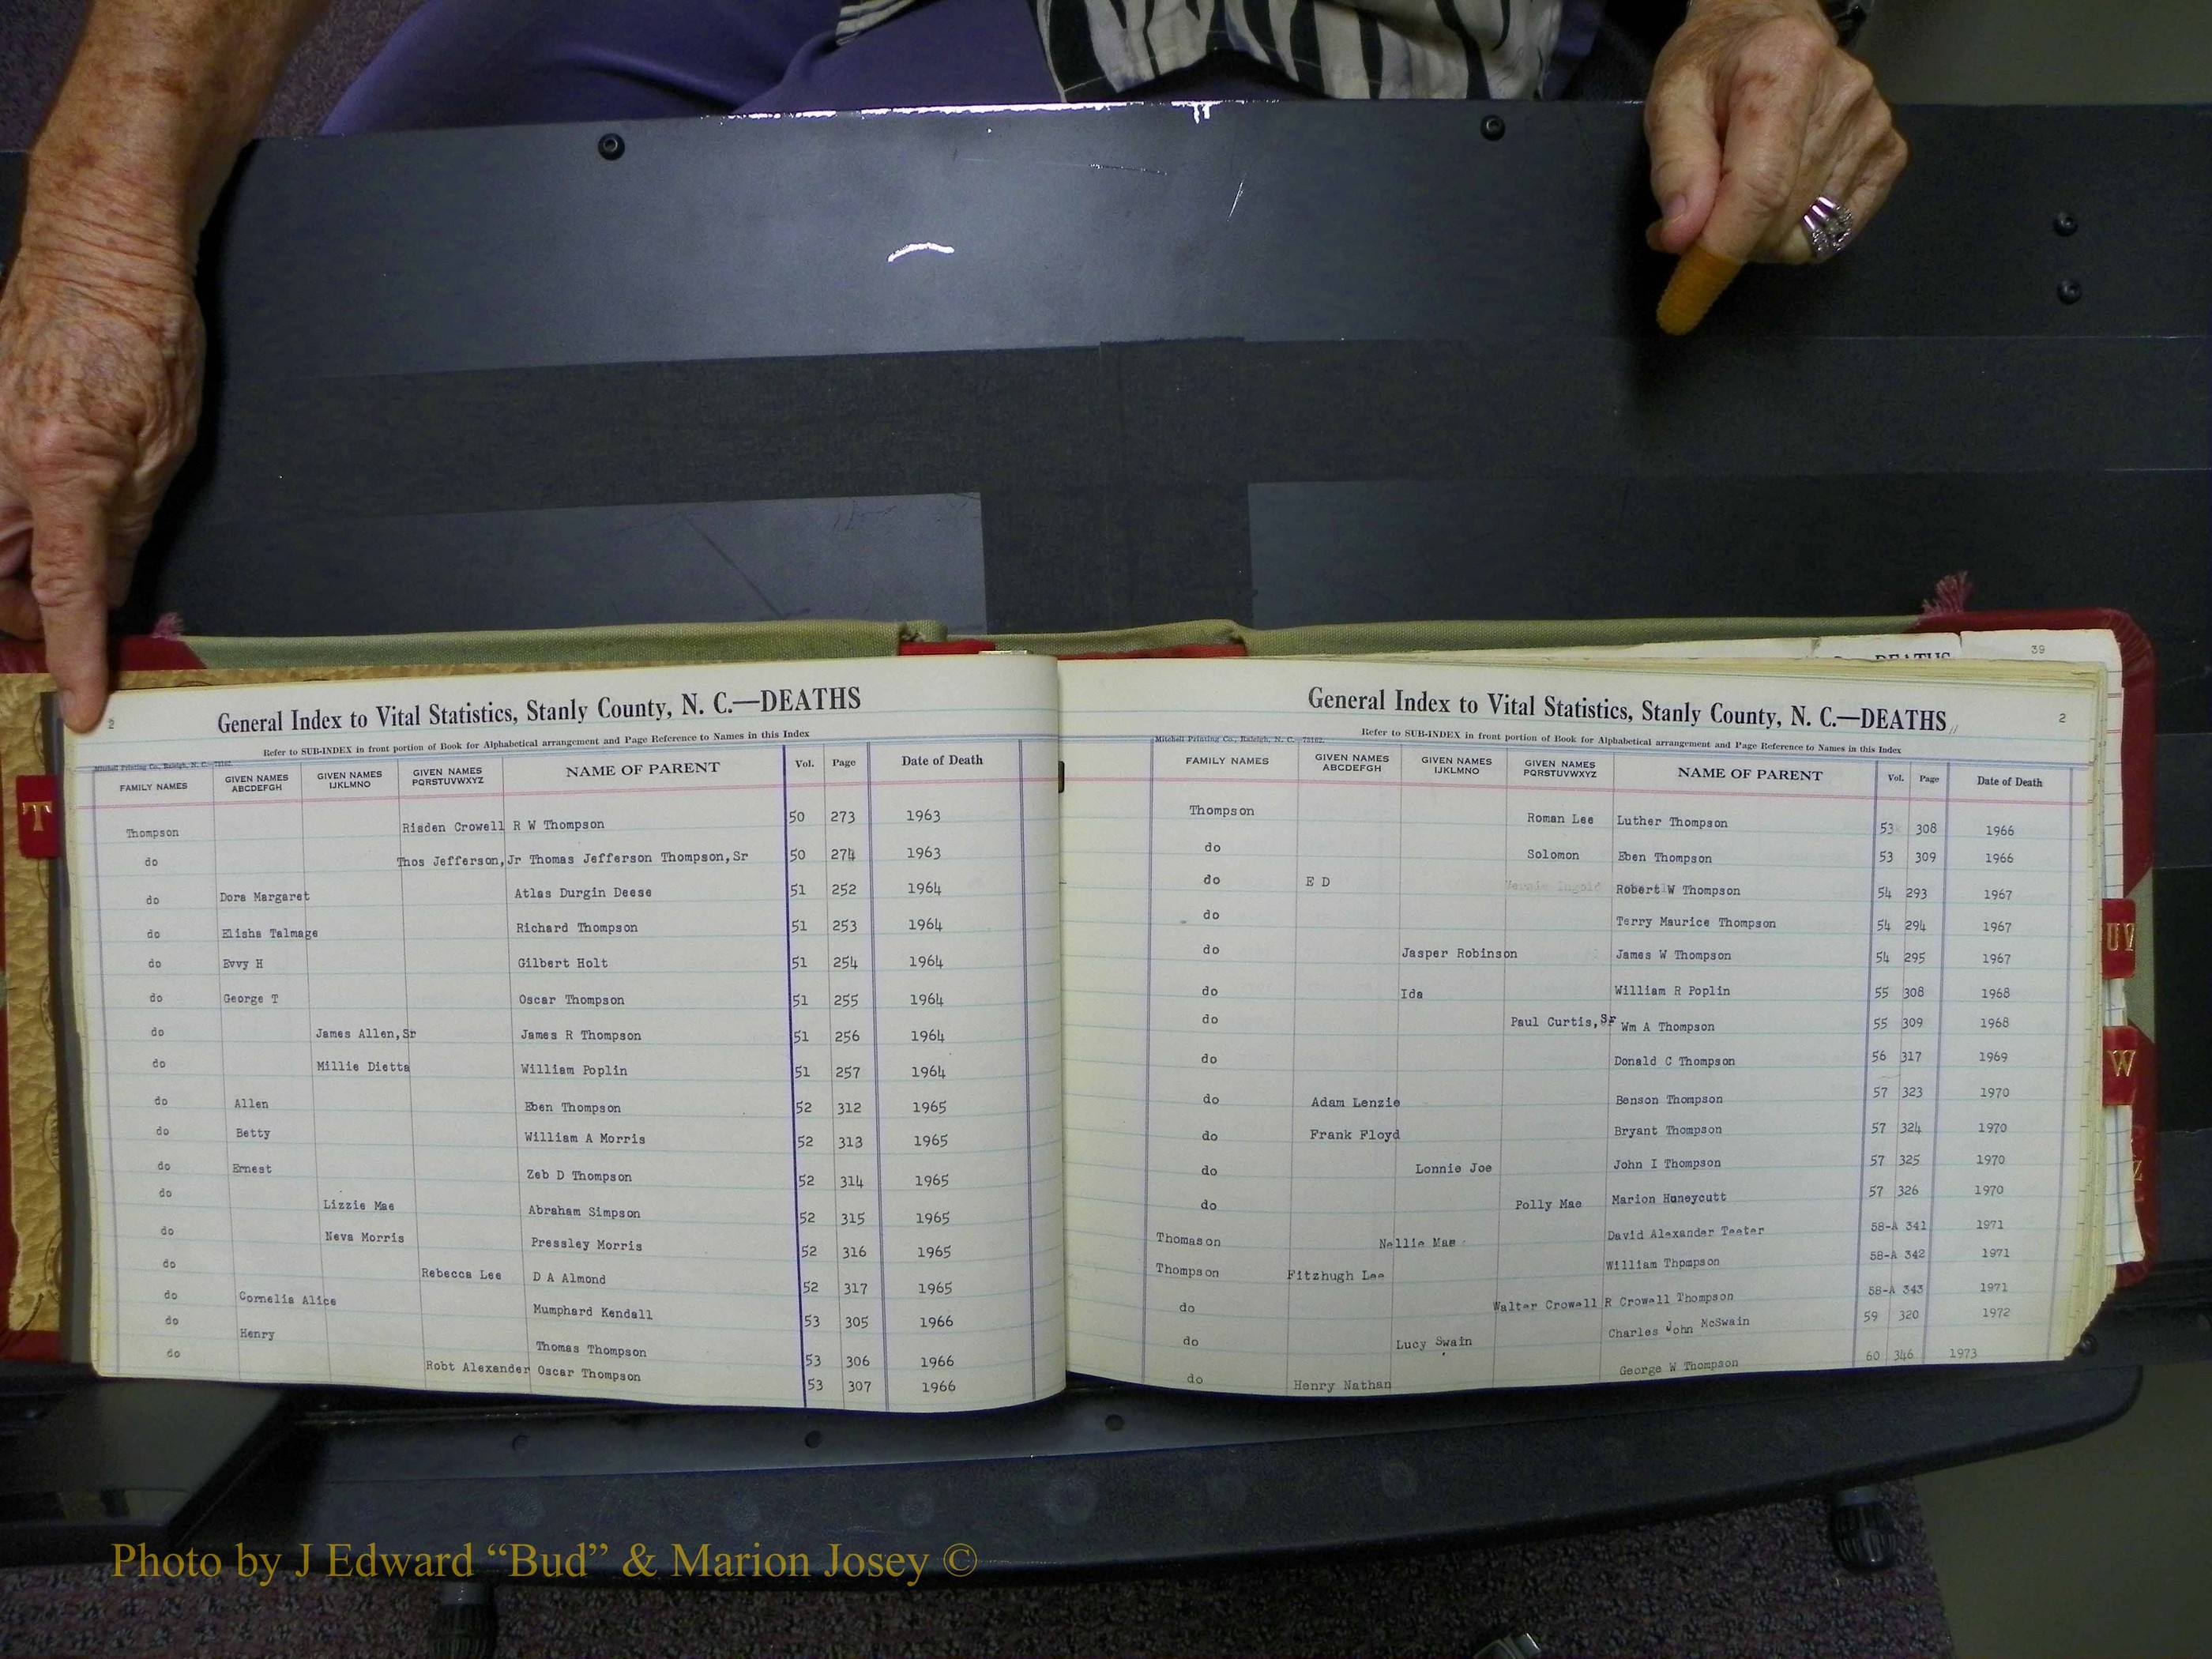 39
DEATHS
2
General Index to Vital Statistics, Stanly County, N. C.—DEATHS
Refer to SUB-INDEX in front portion of Book for Alphabetical arrangement and Page Reference to Names in this Index
Mitchell Printing Co., Raleigh, N. C.
FAMILY NAMES GIVEN NAMES ABCDEFGH GIVEN NAMES IJKLMNO GIVEN NAMES PQRSTUVWXYZ NAME OF PARENT Vol. Page Date of Death
T
Thompson Risden Crowell R W Thompson 50 273 1963
do Thos Jefferson, Jr Thomas Jefferson Thompson, Sr 50 274 1963
do Dora Margaret Atlas Durgin Deese 51 252 1964
do Elisha Talmage Richard Thompson 51 253 1964
do Evvy H Gilbert Holt 51 254 1964
do George T Oscar Thompson 51 255 1964
do James Allen, Sr James R Thompson 51 256 1964
do Millie Dietta William Poplin 51 257 1964
do Allen Eben Thompson 52 312 1965
do Betty William A Morris 52 313 1965
do Ernest Zeb D Thompson 52 314 1965
do Lizzie Mae Abraham Simpson 52 315 1965
do Neva Morris Pressley Morris 52 316 1965
do Rebecca Lee D A Almond 52 317 1965
do Cornelia Alice Mumphard Kendall 53 305 1966
do Henry Thomas Thompson 53 306 1966
do Robt Alexander Oscar Thompson 53 307 1966
General Index to Vital Statistics, Stanly County, N. C.—DEATHS
2
Refer to SUB-INDEX in front portion of Book for Alphabetical arrangement and Page Reference to Names in this Index
Mitchell Printing Co., Raleigh, N. C.
FAMILY NAMES GIVEN NAMES ABCDEFGH GIVEN NAMES IJKLMNO GIVEN NAMES PQRSTUVWXYZ NAME OF PARENT Vol. Page Date of Death
Thompson Roman Lee Luther Thompson 53 308 1966
do Solomon Eben Thompson 53 309 1966
do E D Robert W Thompson 54 293 1967
do Terry Maurice Thompson 54 294 1967
do Jasper Robinson James W Thompson 54 295 1967
do Ida William R Poplin 55 308 1968
do Paul Curtis, Sr Wm A Thompson 55 309 1968
do Donald C Thompson 56 317 1969
do Adam Lenzie Benson Thompson 57 323 1970
do Frank Floyd Bryant Thompson 57 324 1970
do Lonnie Joe John I Thompson 57 325 1970
do Polly Mae Marion Huneycutt 57 326 1970
Thomason Nellie Mae David Alexander Teeter 58-A 341 1971
Thompson Fitzhugh Lee William Thompson 58-A 342 1971
do Walter Crowell R Crowell Thompson 58-A 343 1971
do Lucy Swain Charles John McSwain 59 320 1972
do Henry Nathan George W Thompson 60 346 1973
UV
W
Z
Photo by J Edward “Bud” & Marion Josey ©